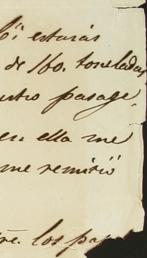 estarás
de 160. toneladas
pasage,
en ella me
me remitió
los pa